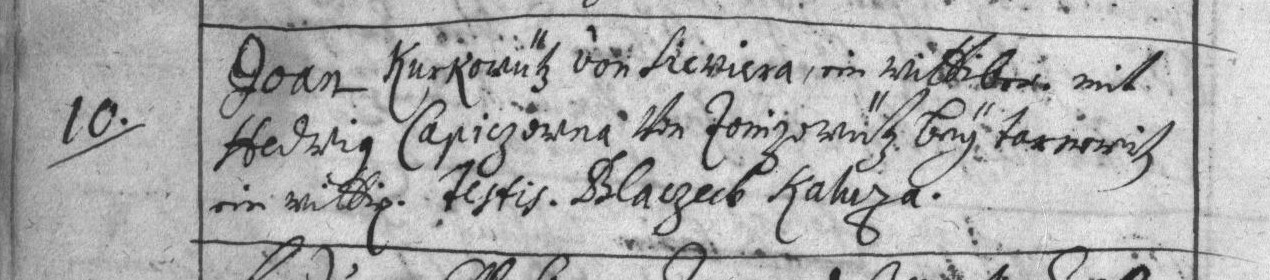 10.
Joan Kurkowütz von Sieviera, ein wittiber. mit
Hedwig Capiczowna Von bey̋ tarnowitz
ein wittip. Testis. Blaczek Kaluza.